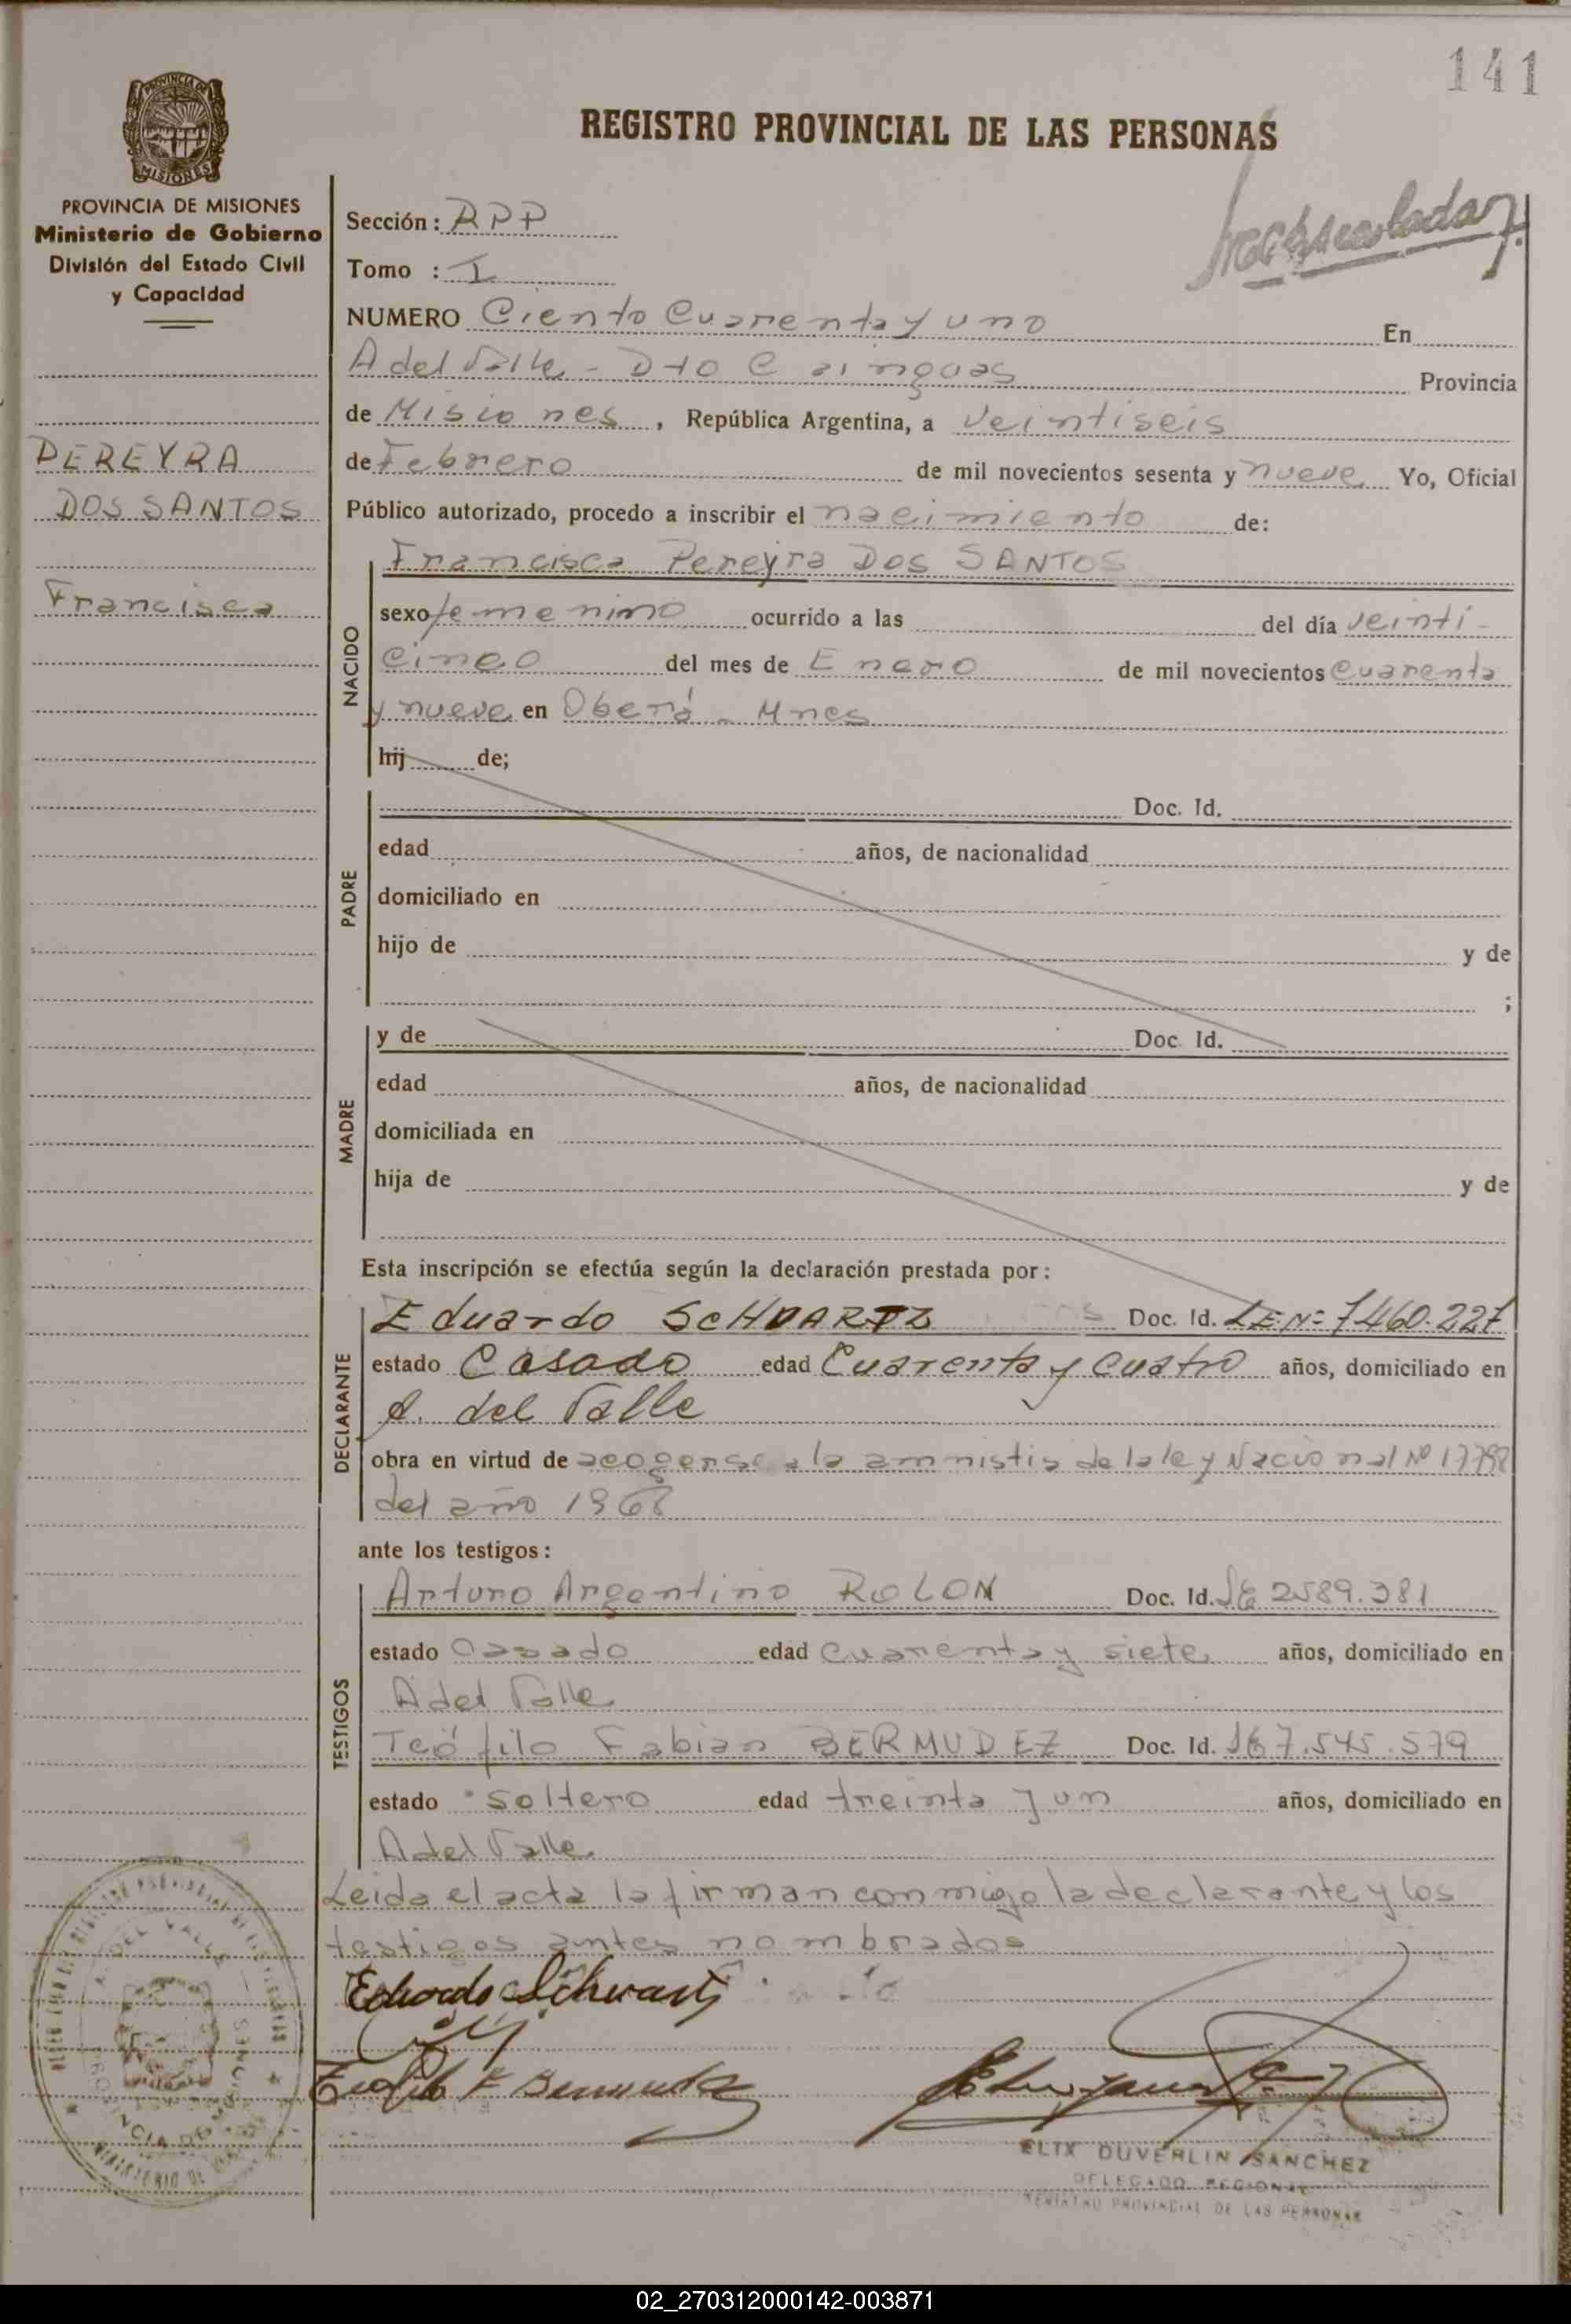 141
REGISTRO PROVINCIAL DE LAS PERSONAS
PROVINCIA DE
MISIONES
PROVINCIA DE MISIONES
Ministerio de Gobierno
División del Estado Civil
y Capacidad
PEREYRA
DOS SANTOS
Francisca
Sección: RPP
Tomo : I
NUMERO Ciento Cuarenta y uno En
A del Valle - Dto Cainguas Provincia
de Misiones, República Argentina, a veintiseis
de Febrero de mil novecientos sesenta y nueve Yo, Oficial
Público autorizado, procedo a inscribir el nacimiento de:
NACIDO
Francisca Pereyra Dos SANTOS
sexo femenino ocurrido a las del día veinti-
cinco del mes de Enero de mil novecientos cuarenta
y nueve en Oberá - Mnes
hij de;
PADRE
Doc. Id.
edad años, de nacionalidad
domiciliado en
hijo de y de
;
MADRE
y de Doc. Id.
edad años, de nacionalidad
domiciliada en
hija de y de
Esta inscripción se efectúa según la declaración prestada por:
DECLARANTE
Eduardo SCHWARTZ Doc. Id. LE Nº 7460.227
estado Casado edad Cuarenta y cuatro años, domiciliado en
A. del Valle
obra en virtud de acogerse a la amnistia de la ley Nacional Nº 17798
del año 1968
ante los testigos:
TESTIGOS
Arturo Argentino ROLON Doc. Id. LE 2589.381
estado casado edad cuarenta y siete años, domiciliado en
A del Valle
Teófilo Fabian BERMUDEZ Doc. Id. LE 7.545.579
estado soltero edad treinta y un años, domiciliado en
A del Valle
Leida el acta la firman conmigo la declarante y los
testigos antes nombrados
Eduardo Schwartz
DEL VALLE
PROVINCIA DE MISIONES
MINISTERIO DE
ELIX DUVERLIN SANCHEZ
DELEGADO REGIONAL
REGISTRO PROVINCIAL DE LAS PERSONAS
02_270312000142-003871